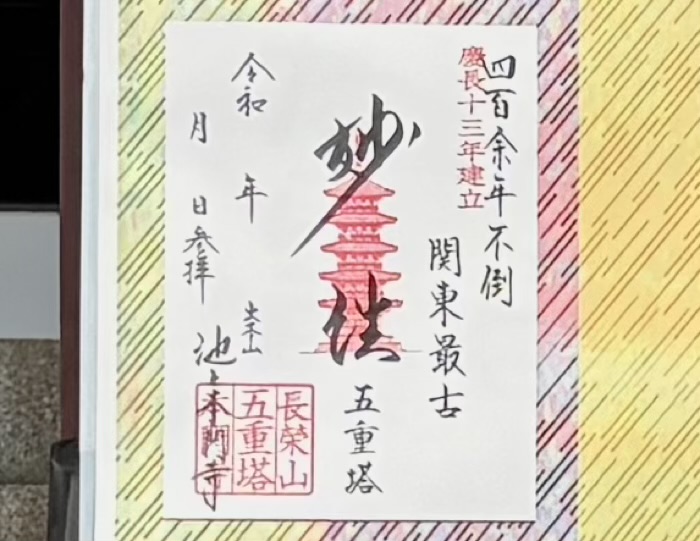 四百余年不倒
慶長十三年建立
関東最古
五重塔
妙法
大本山
池上本門寺
令和 年
月 日参拝
長榮山
五重塔
本門寺